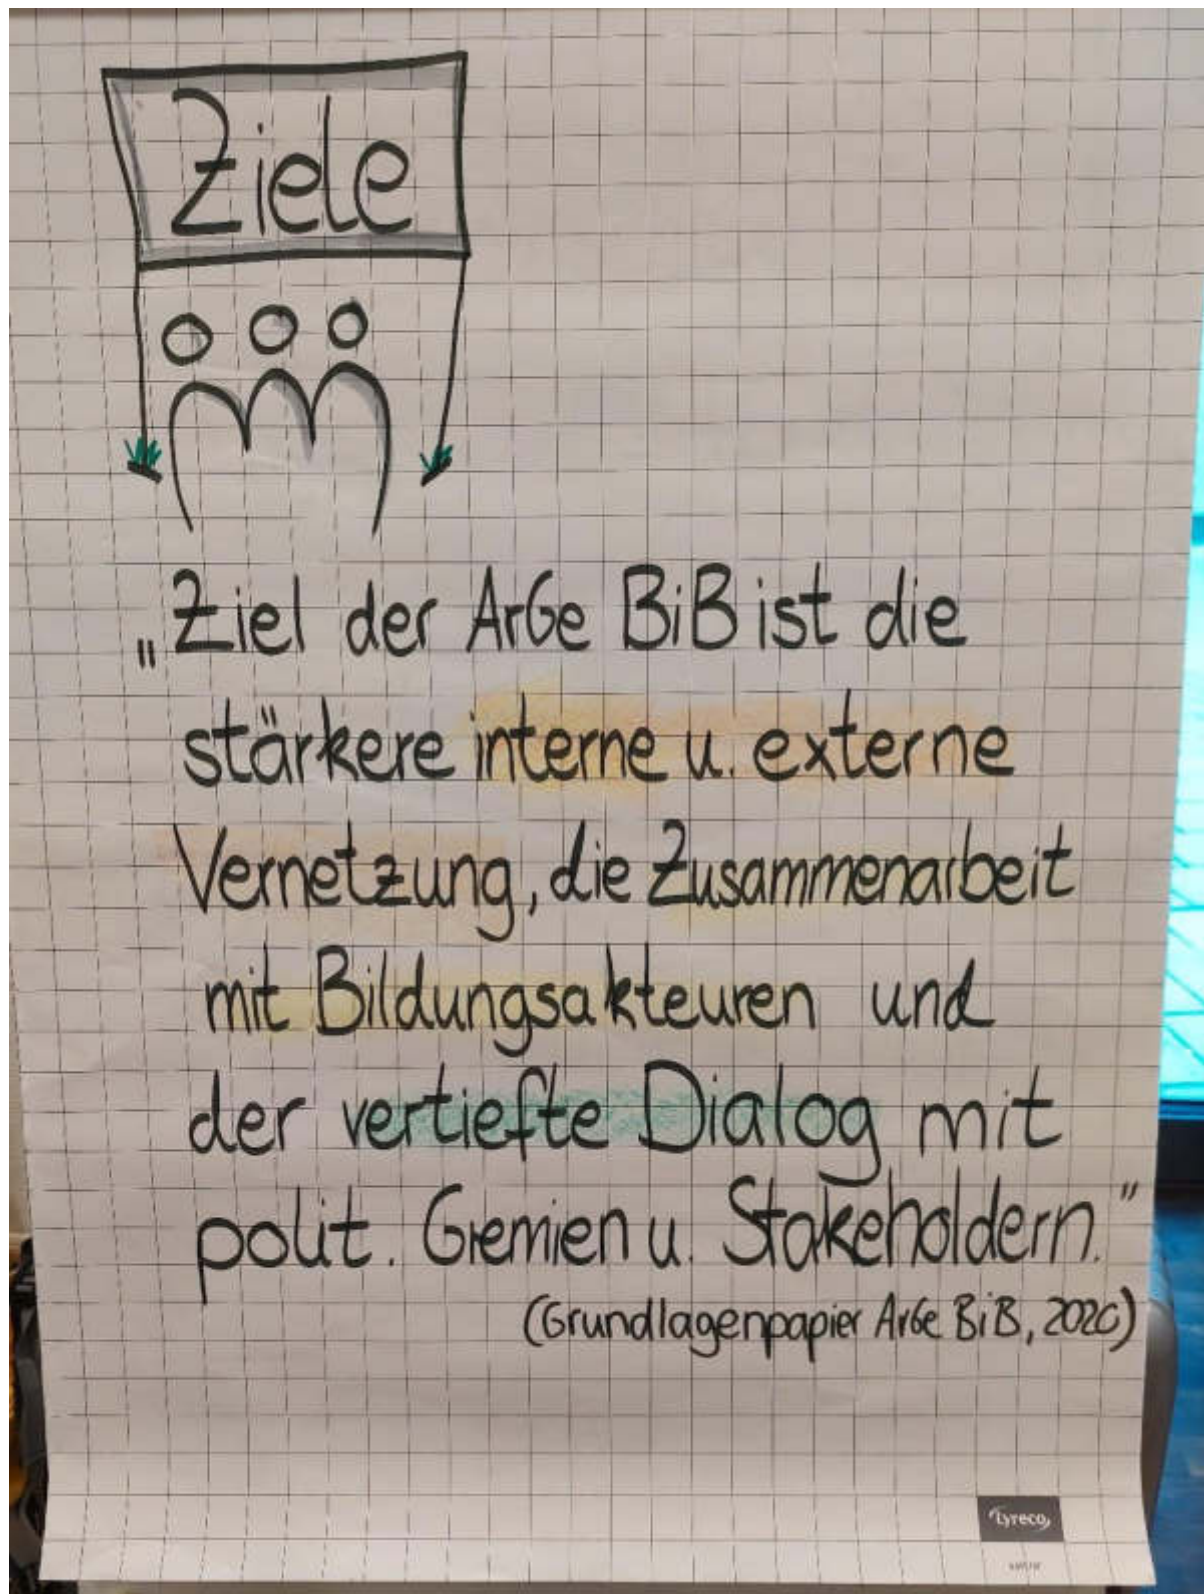 Ziele
„Ziel der ArGe BiB ist die
stärkere interne u. externe
Vernetzung, die Zusammenarbeit
mit Bildungsakteuren und
der vertiefte Dialog mit
polit. Gremien u. Stakeholdern."
(Grundlagenpapier ArGe BiB, 2020)
Lyreco